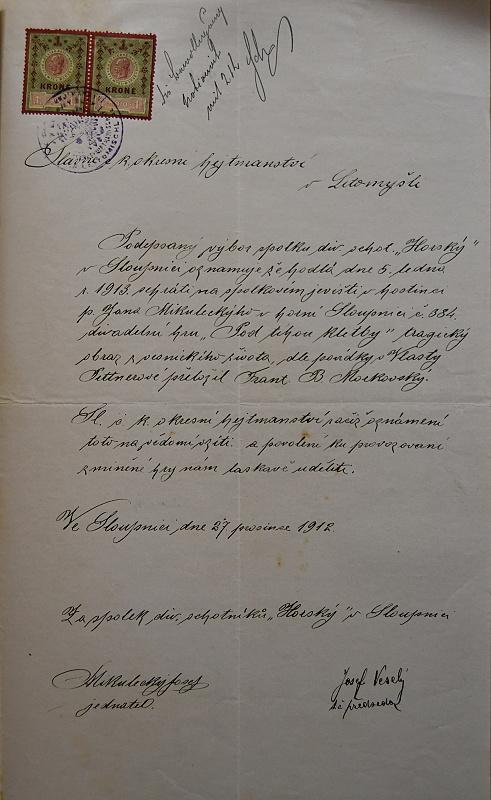 KRONE KRONE
1 1
mit 2 K
Slavné c. k. okresní hejtmanství
v Litomyšli
Podepsaný výbor spolku div. ochot. „Horský"
v Sloupnici oznamuje že hodlá dne 5. ledna
r. 1913. sehráti na spolkovém jevišti v hostinci
p. Jana Mikuleckýho v horní Sloupnici č. 384.
divadelní hru „Pod tíhou kletby" tragický
obraz z vesnického života, dle povídky Vlasty
Pittnerové přeložil Frant. B. Morkovsky.
Sl. c. k. okresní hejtmanství račiž oznámení
toto na vědomí vzíti a povolení ku provozování
zmíněné hry nám laskavě uděliti.
Ve Sloupnici dne 27 prosince 1912.
Za spolek div. ochotníků „Horský" v Sloupnici
Mikulecký Josef
jednatel.
Josef Veselý
předseda